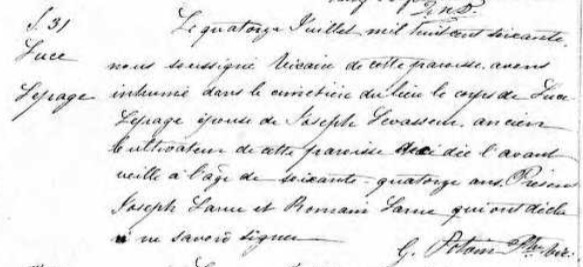 S. 31
Luce
Lepage
Le quatorze Juillet mil huit cent soixante,
nous soussigné Vicaire de cette paroisse avons
inhumé dans le cimetière du lieu le corps de Luce
Lepage épouse de Joseph Levasseur, ancien
cultivateur de cette paroisse décidée l'avant
veille à l'âge de soixante-quatorze ans. Présens
Joseph Larue et Romain Larue qui ont déclaré
ne savoir signer
G. Potvin Ptre Vic.